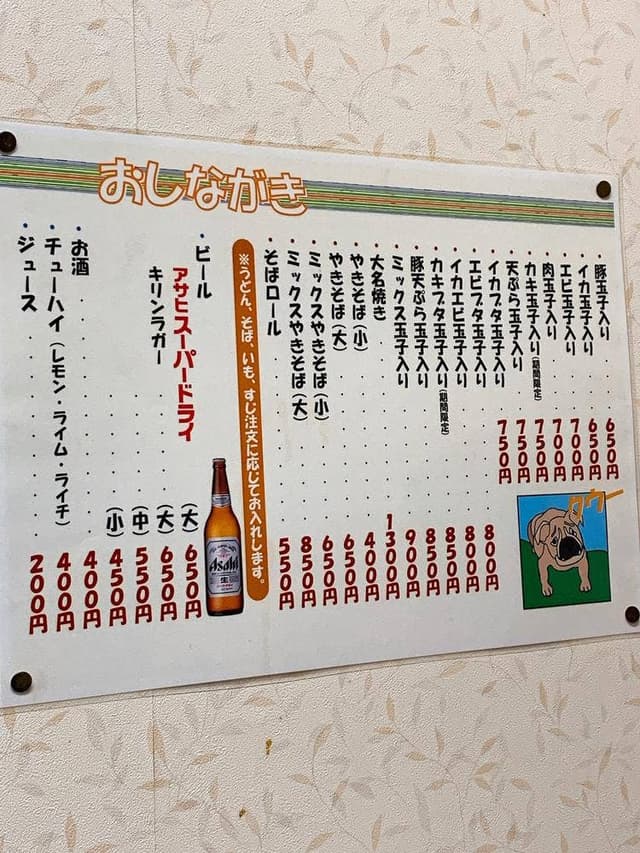 おしながき
・豚玉子入り・・・・650円
・イカ玉子入り・・・・650円
・エビ玉子入り・・・・700円
・肉玉子入り・・・・700円
・カキ玉子入り(期間限定)・750円
・天ぷら玉子入り・・・750円
・イカブタ玉子入り・・750円
・エビブタ玉子入り・・・・800円
・イカエビ玉子入り・・・・800円
・カキブタ玉子入り(期間限定)・・850円
・豚天ぷら玉子入り・・・・850円
・ミックス玉子入り・・・・900円
・大名焼き・・・・1300円
・やきそば(小)・・・・400円
・やきそば(大)・・・・650円
・ミックスやきそば(小)・・・・650円
・ミックスやきそば(大)・・・・850円
・そばロール・・・・550円
※うどん、そば、いも、すじ注文に応じてお入れします。
・ビール
アサヒスーパードライ (大)650円
キリンラガー・・・・(大)650円
(中)550円
(小)450円
・お酒・・・・400円
・チューハイ(レモン・ライム・ライチ)400円
・ジュース・・・・200円
Asahi
生
クウー